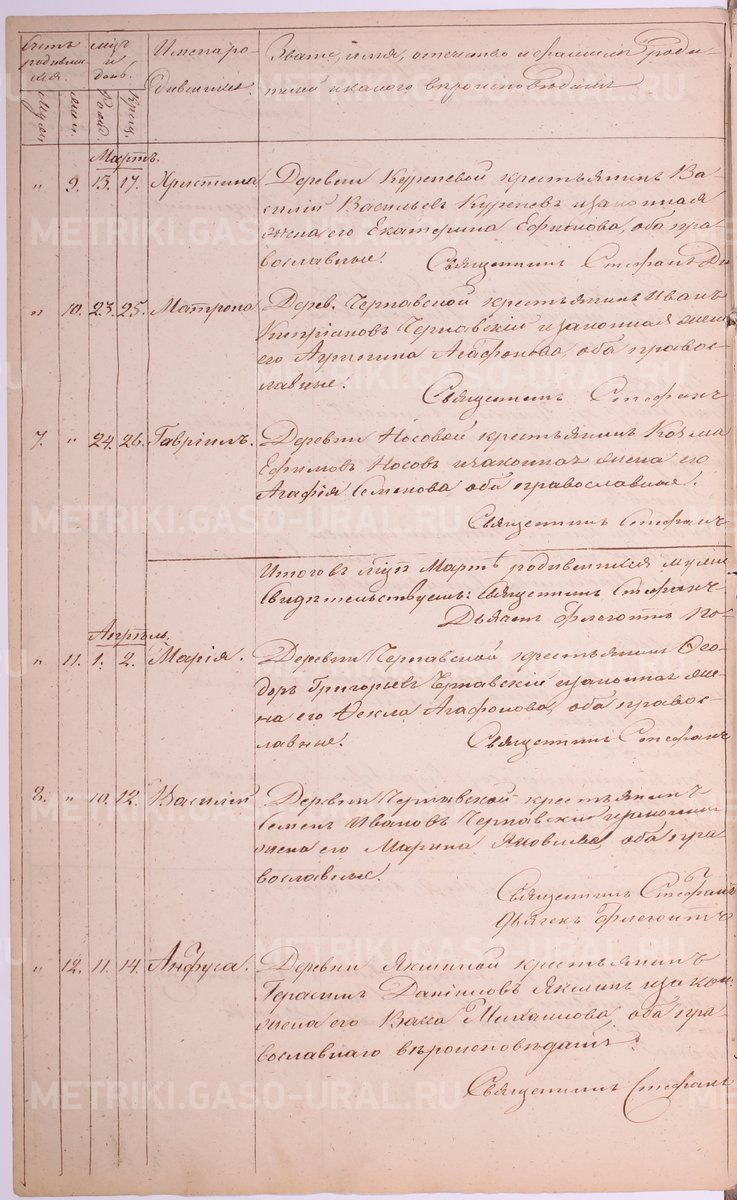 Счетъ родившихся.
Муж. жен.
мѣц и день.
Рожд Крещ.
Имена родившихся.
Званіе, имя, отчество и фамилія роди-
телей и какого вѣроисповѣданія
Мартъ.
" 9. 13. 17. Христина Деревни Куреневой крестьянинъ Ва-
силій Васильевъ Куреневъ и законная
жена его Екатерина Ефимова, оба пра-
вославные. Священникъ Стефанъ
" 10. 23. 25. Матрона Дерев. Чернавской крестьянинъ Иванъ
Кипріановъ Чернавскій и законная жена
его Агрипина Агафонова, оба правос-
лавные. Священникъ Стефанъ
7. " 24. 26. Гавріилъ. Деревни Носовой крестьянинъ Козма
Ефимовъ Носовъ и законная жена его
Агафія Семенова оба православные.
Священникъ Стефанъ
Итого въ мѣцѣ Мартѣ родившихся муж
Свидѣтельствуемъ: Священникъ Стефанъ
Дьячекъ Флегонтъ
Апрѣль.
" 11. 1. 2. Марія. Деревни Чернавской крестьянинъ Ѳео-
доръ Григорьевъ Чернавскій и законная же-
на его Ѳекла Агафонова, оба правос-
лавные. Священникъ Стефанъ
8. " 10. 12. Василій Деревни Чернавской крестьянинъ
Семенъ Ивановъ Чернавскій и законная
жена его Марина Яковлева, оба пра-
вославные.
Священникъ Стефанъ
Дьячекъ Флегонтъ
" 12. 11. 14. Анфуса. Деревни Якшиной крестьянинъ
Герасимъ Даніиловъ Якшинъ и закон.
жена его Васса Михаилова, оба пра-
вославнаго вѣроисповѣданія.
Священникъ Стефанъ
METRIKI.GASO-URAL.RU